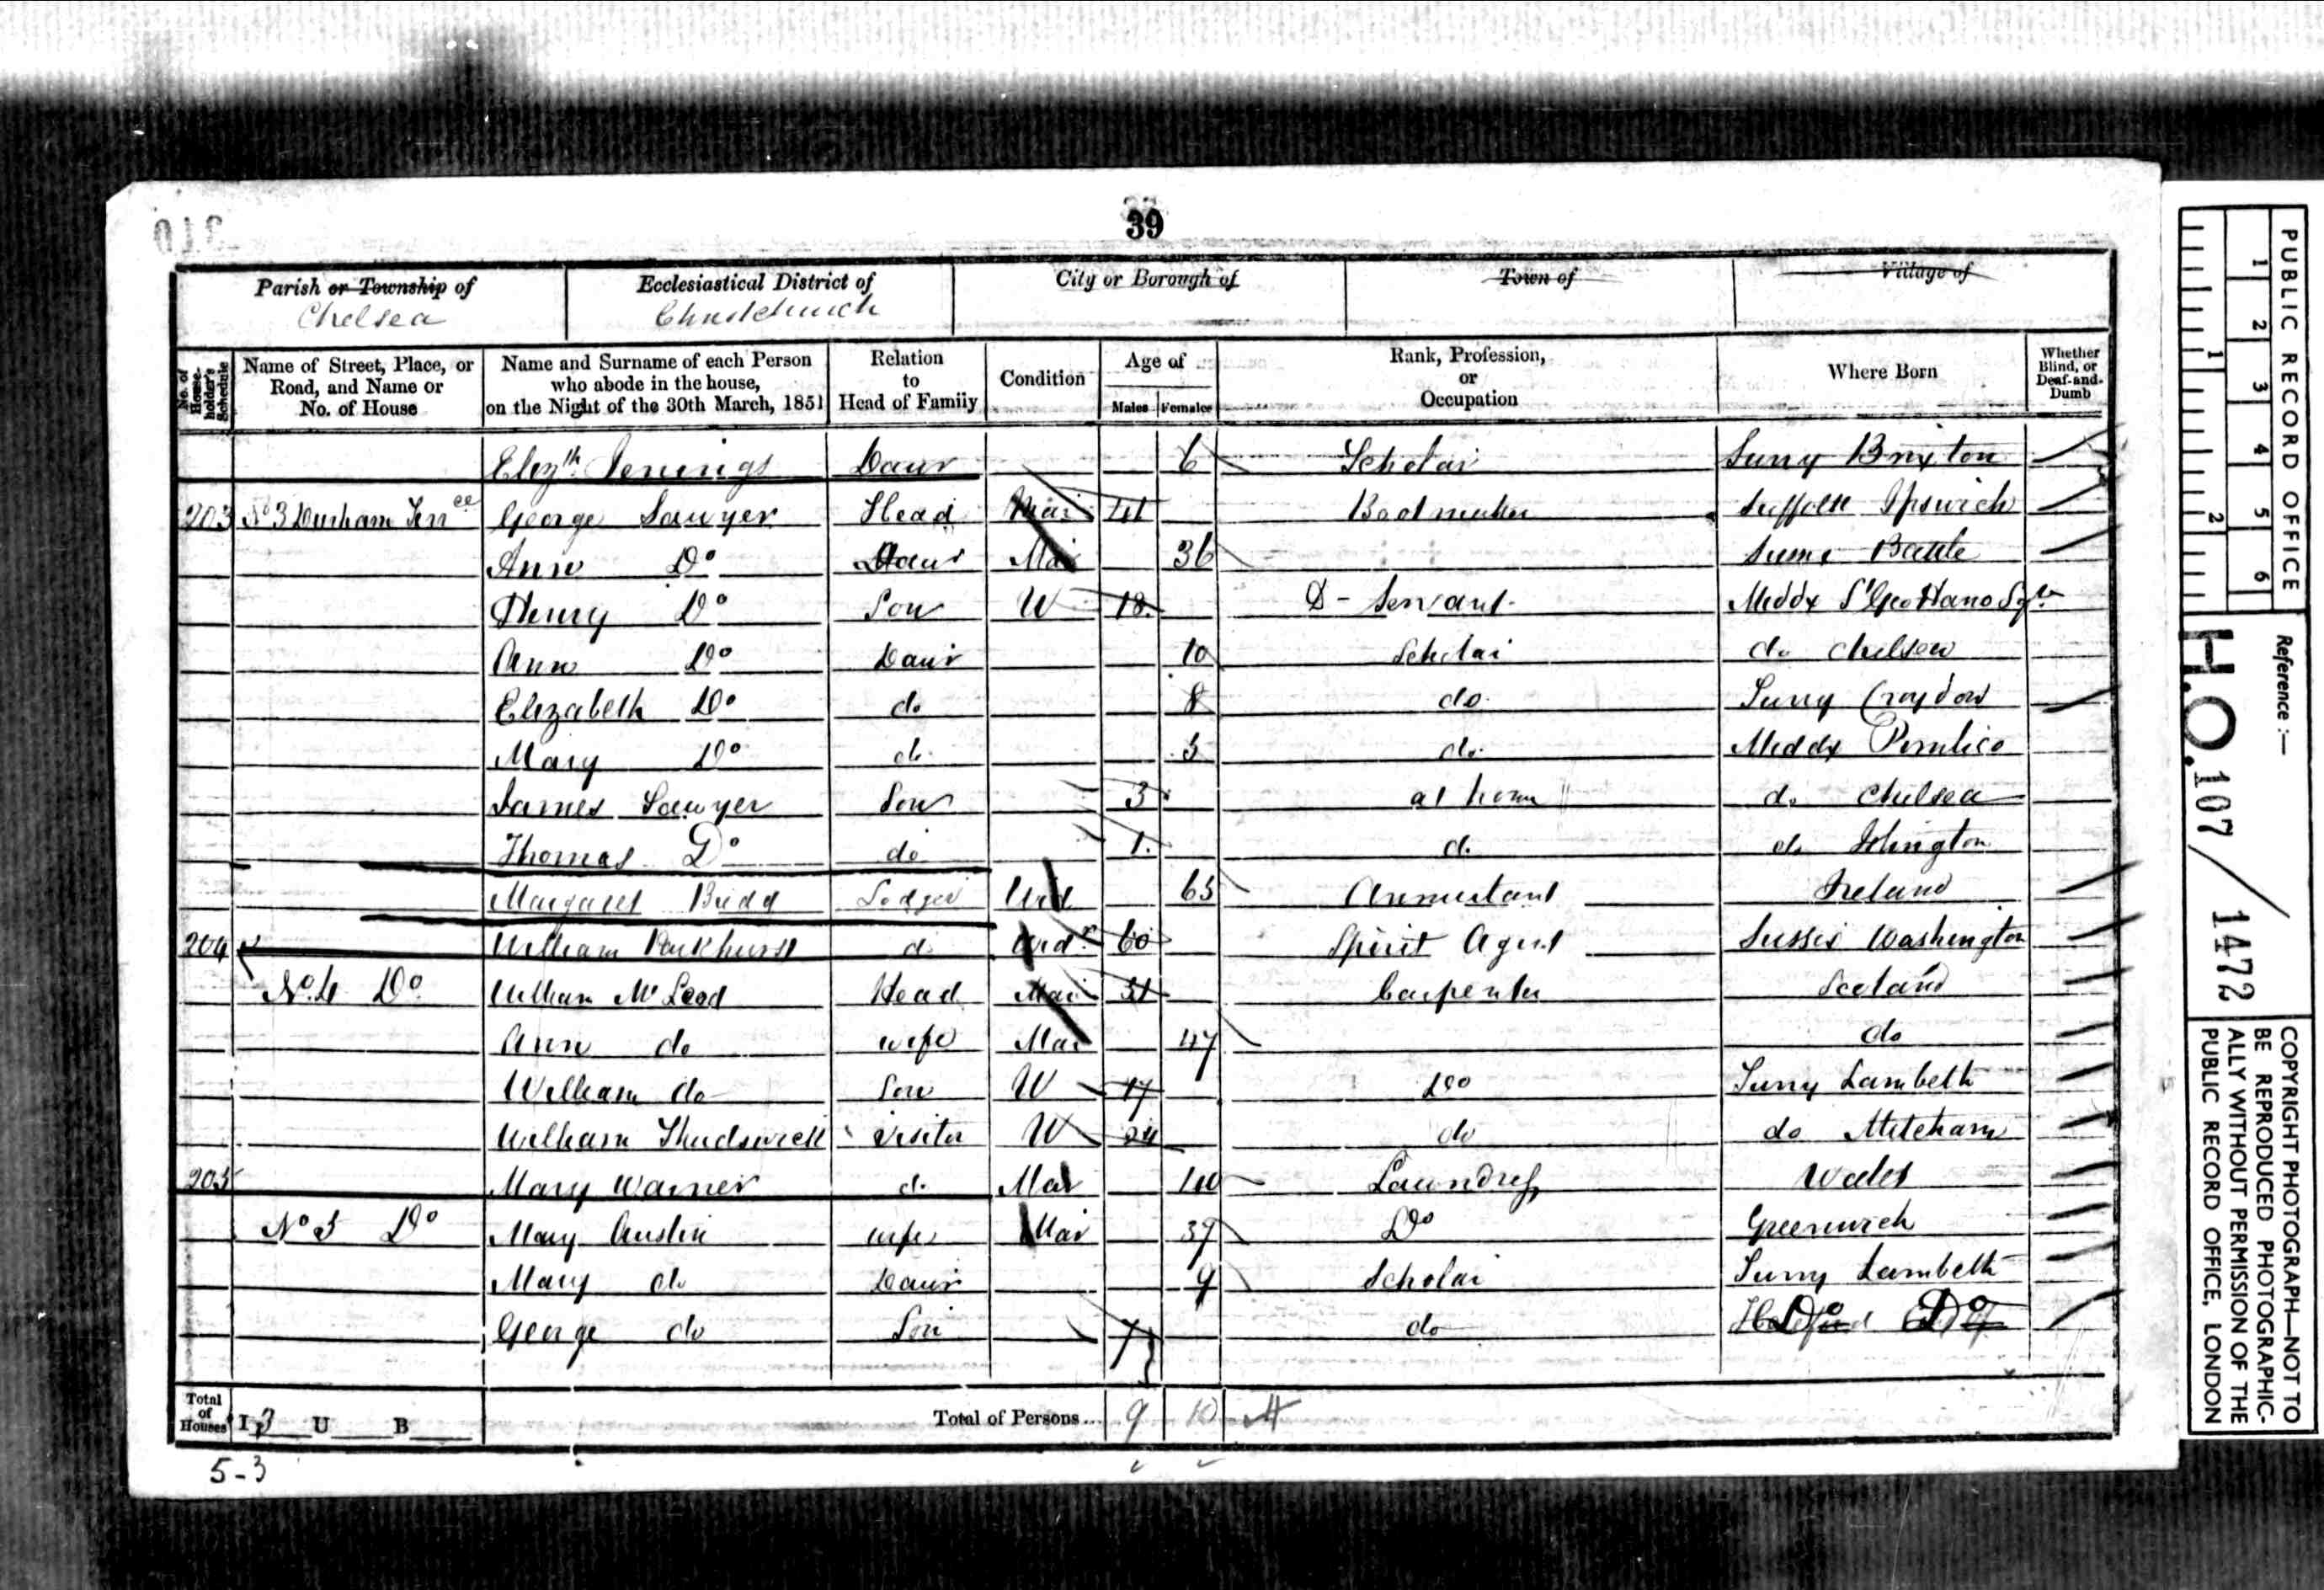 39
Parish or Township of
Chelsea
Ecclesiastical District of
Christchurch
City or Borough of
Town of
Village of
No. of House-holder's Schedule
Name of Street, Place, or Road, and Name or No. of House
Name and Surname of each Person who abode in the house, on the Night of the 30th March, 1851
Relation to Head of Family
Condition
Age of
Males Females
Rank, Profession, or Occupation
Where Born
Whether Blind, or Deaf-and-Dumb
Elizth Jenings Daur 6 Scholar Surry Brixton
203 No 3 Durham Terrce George Sawyer Head Mar 41 Bootmaker Suffolk Ipswich
Ann Do Mar 36 Battle
Henry Do Son U 18 D - Servant Middx St Geo Hano Sqre
Ann Do Daur 10 Scholar do Chelsea
Elizabeth Do do 8 do Surry Croydon
Mary Do do 5 do Middx Pimlico
James Sawyer Son 3 at home do Chelsea
Thomas Do do 1 do do Islington
Margaret Budd Lodger Wid 65 Annuitant Ireland
204 William Parkhurst do Widr 60 Spirit Agent Sussex Washington
No. 4 Do William McLeod Head Mar 51 Carpenter Scotland
Ann do wife Mar 47 do
William do Son U 17 Do Surry Lambeth
William visitor U 24 do do Mitcham
205 Mary Warner do Mar 40 Laundress Wales
No 5 Do Mary Austin wife Mar 37 Do Greenwich
Mary do Daur 9 Scholar Surry Lambeth
George do Son 7 do Do Do
Total of Houses I 3 U B Total of Persons... 9 10
5-3
PUBLIC RECORD OFFICE
1 2 3 4 5 6
1 2
Reference:-
H.O. 107 / 1472
COPYRIGHT PHOTOGRAPH—NOT TO BE REPRODUCED PHOTOGRAPHIC-ALLY WITHOUT PERMISSION OF THE PUBLIC RECORD OFFICE, LONDON